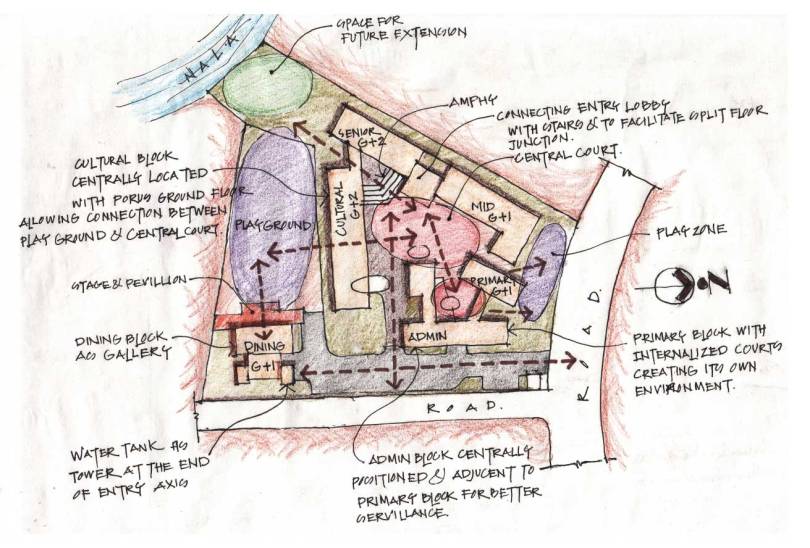 SPACE FOR
FUTURE EXTENSION
NALA
AMPHY
CONNECTING ENTRY LOBBY
WITH STAIRS & TO FACILITATE SPLIT FLOOR
JUNCTION.
CENTRAL COURT.
SENIOR
G+2
CULTURAL BLOCK
CENTRALLY LOCATED
WITH PORUS GROUND FLOOR
ALLOWING CONNECTION BETWEEN
PLAY GROUND & CENTRAL COURT.
CULTURAL
G+2
MID
G+1
PLAYGROUND
PLAY ZONE
STAGE & PEVILLION
PRIMARY
G+1
N
DINING BLOCK
AS GALLERY
DINING
G+1
ADMIN
PRIMARY BLOCK WITH
INTERNALIZED COURTS
CREATING ITS OWN
ENVIRONMENT.
ROAD.
ROAD.
WATER TANK AS
TOWER AT THE END
OF ENTRY AXIS
ADMIN BLOCK CENTRALLY
POSITIONED & ADJUCENT TO
PRIMARY BLOCK FOR BETTER
SERVILLANCE.